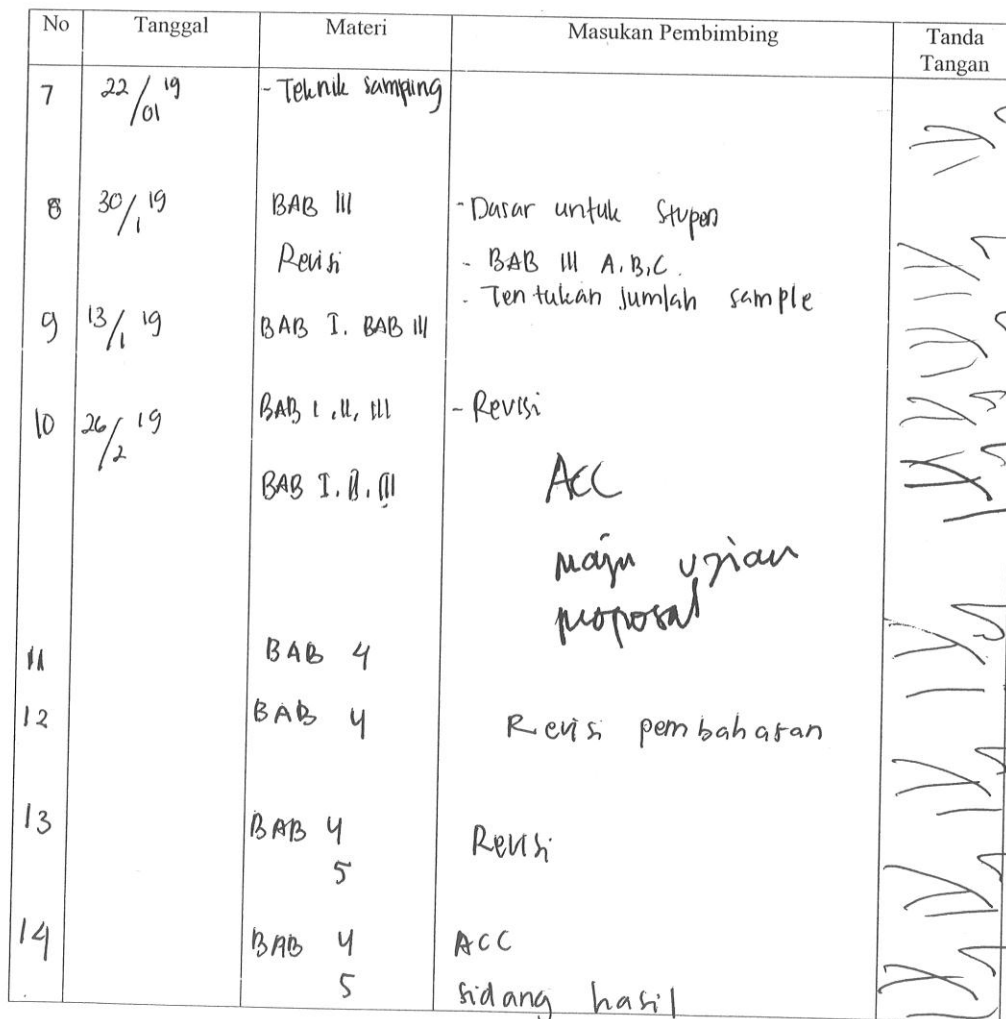 No Tanggal Materi Masukan Pembimbing Tanda Tangan
7 22/01 19 - Teknik sampling
8 30/1 19 BAB III - Dasar untuk Stupen
Revisi - BAB III A, B, C.
- Tentukan jumlah sample
9 13/1 19 BAB I. BAB III
10 26/2 19 BAB I, II, III - Revisi
BAB I. II. III ACC
maju ujian
proposal
11 BAB 4
12 BAB 4 Revisi pembahasan
13 BAB 4 Revisi
5
14 BAB 4 ACC
5 sidang hasil